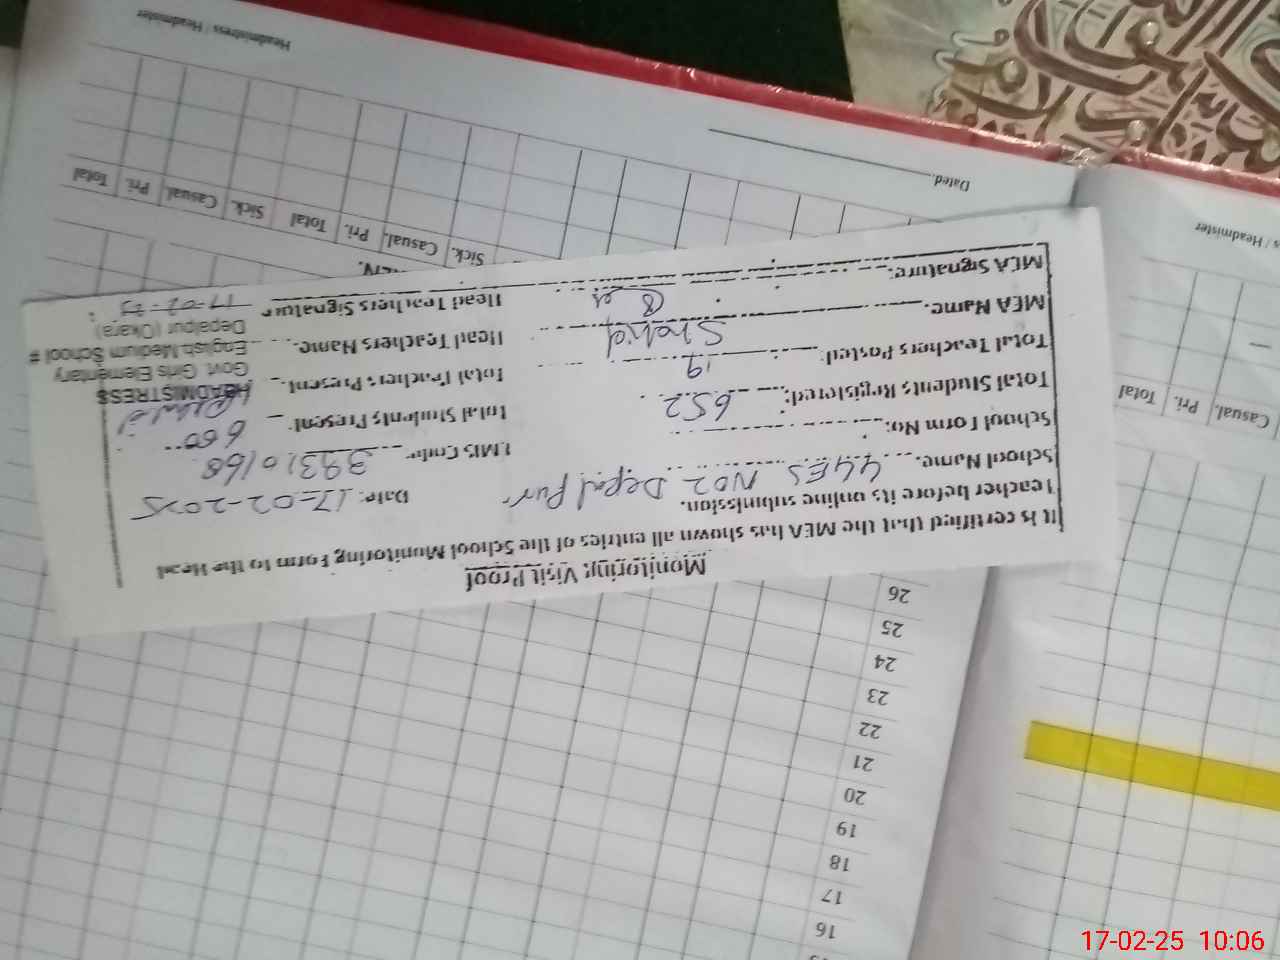 Monitoring Visit Proof
It is certified that the MEA has shown all entries of the School Monitoring Form to the Head
Teacher before its online submission.
Date: 17-02-2025
School Name. GGES NO2 Depal Pur
EMIS Code. 39310168
School Form No:
Total Students Present: 600
Total Students Registered: 652
Total Teachers Present.
Total Teachers Posted: 19
Head Teachers Name.
MEA Name. Shahid
Head Teachers Signatur
MEA Signature:
HEADMISTRESS
Govt. Girls Elementary
English Medium School #
Depalpur (Okara)
17-02-25
Headmistress / Headmister
Dated.
Sick. Casual. Pri. Total Sick. Casual. Pri. Total
s / Headmister
Casual. Pri. Total
16
17
18
19
20
21
22
23
24
25
26
17-02-25 10:06